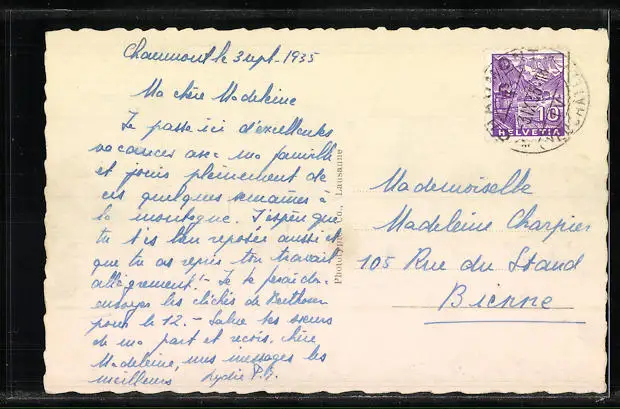 Chaumont le 3 sept. 1935
Ma chère Madeleine
Je passe ici d'excellentes
vacances avec ma famille
et jouis pleinement de
ces quelques semaines à
la montagne. J'espère que
tu t'es bien reposée aussi et
que tu as repris ton travail
allégrement! - Je te
les clichés de
pour le 12. - Salue tes sœurs
de ma part et reçois, chère
Madeleine, mes messages les
meilleurs Lydie
Phototypie Co., Lausanne
10
HELVETIA
Mademoiselle
Madeleine Charpier
105 Rue du Stand
Bienne